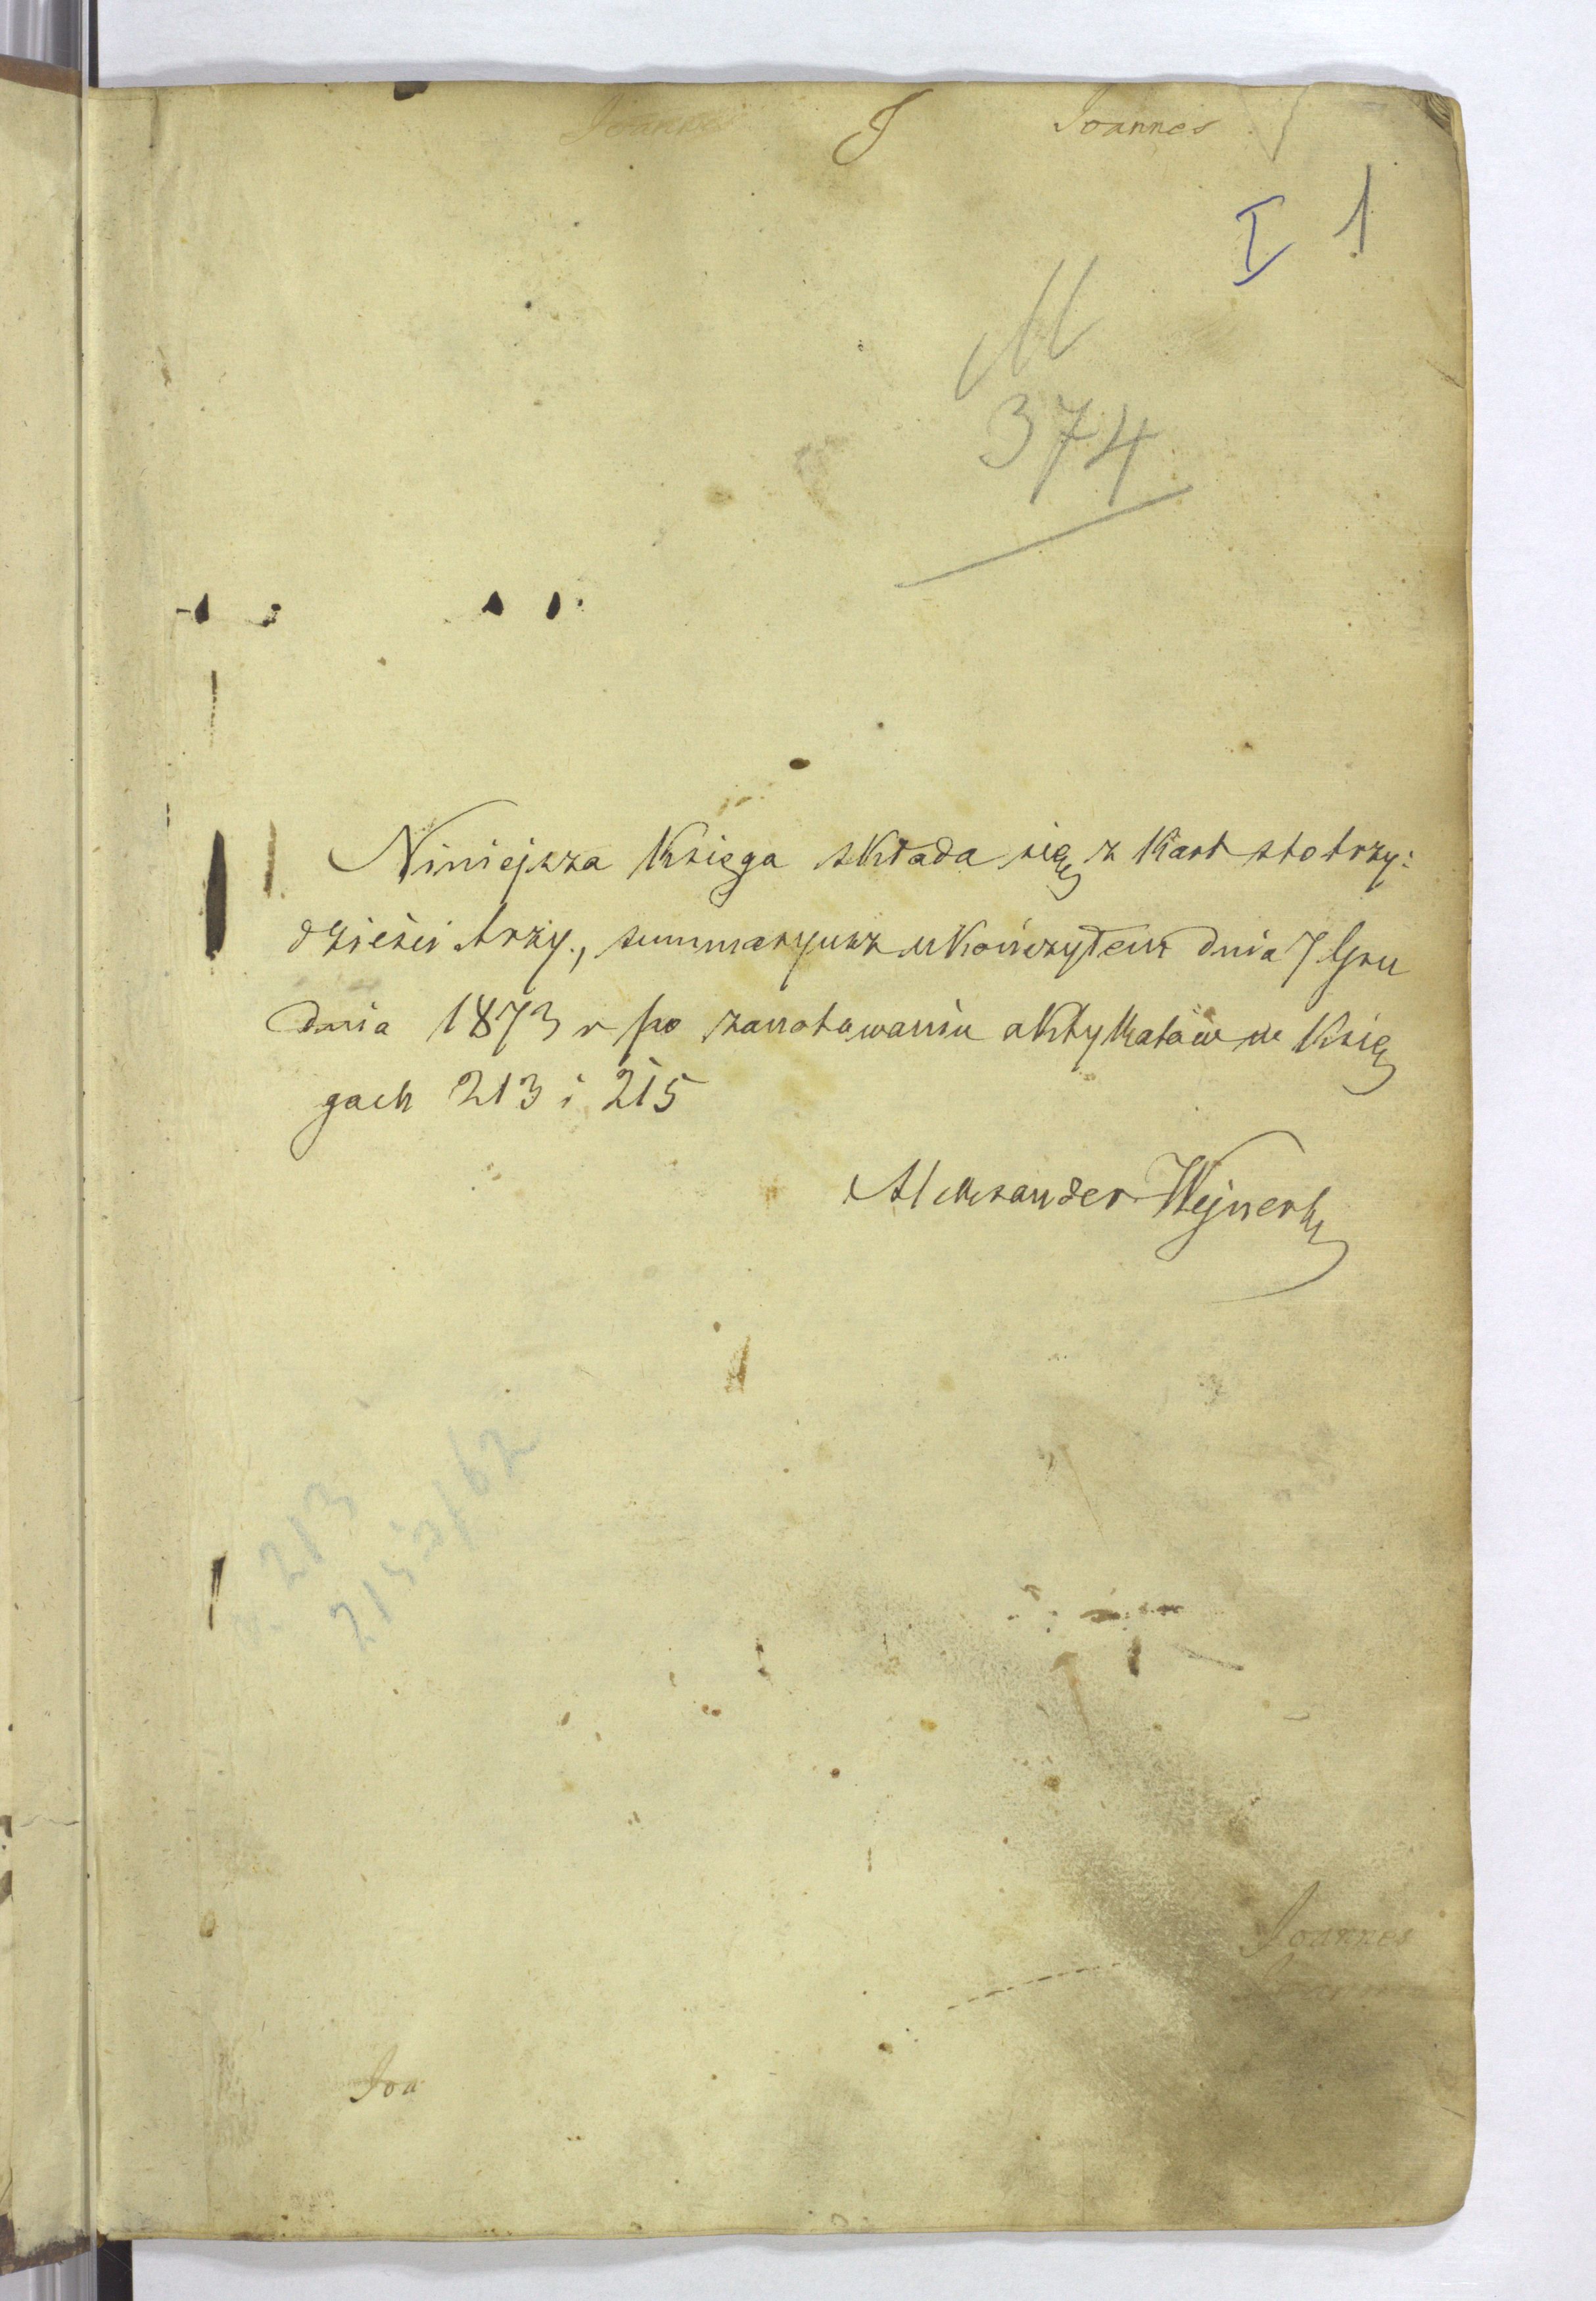 Joannes J Joannes
I 1
M
374
Niniejsza Księga składa się z kart sto trzy:
dzieści trzy., summaryusz ukończyłem dnia 7 Gru
dnia 1873 r po zanotowaniu aktykatów w Księ
gach 213 i 215
Aleksander Wejnert
213
215
Joannes
Joa